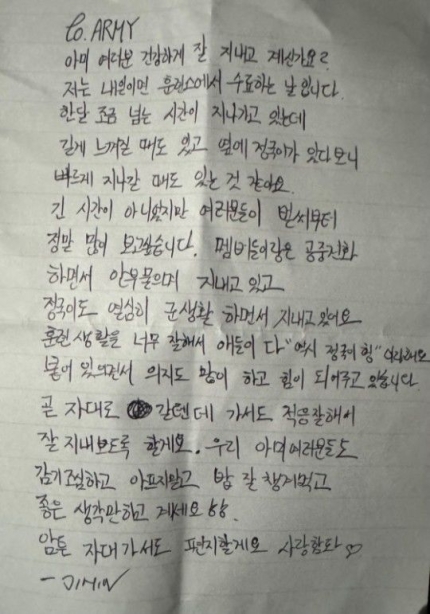 to. ARMY
아미 여러분 건강하게 잘 지내고 계신가요?
저는 내일이면 훈련소에서 수료하는 날입니다.
한달 조금 넘는 시간이 지나가고 있는데
길게 느껴질 때도 있고 옆에 정국이가 있다보니
빠르게 지나갈 때도 있는 것 같아요.
긴 시간이 아니었지만 여러분들이 벌써부터
정말 많이 보고싶습니다. 멤버들이랑은 공중전화
하면서 안부물으며 지내고 있고
정국이도 열심히 군생활 하면서 지내고있어요
훈련생활을 너무 잘해서 애들이 다 "역시 정국이형" 이러네요
붙어 있으면서 의지도 많이 하고 힘이 되어주고 있습니다
곧 자대로 갈텐데 가서도 적응잘해서
잘 지내보도록 할게요. 우리 아미여러분들도
감기조심하고 아프지말고 밥 잘 챙겨먹고
좋은 생각만하고 계세요 ㅎㅎ.
암튼 자대가서도 편지할게요 사랑합니다 ♡
- JIMIN